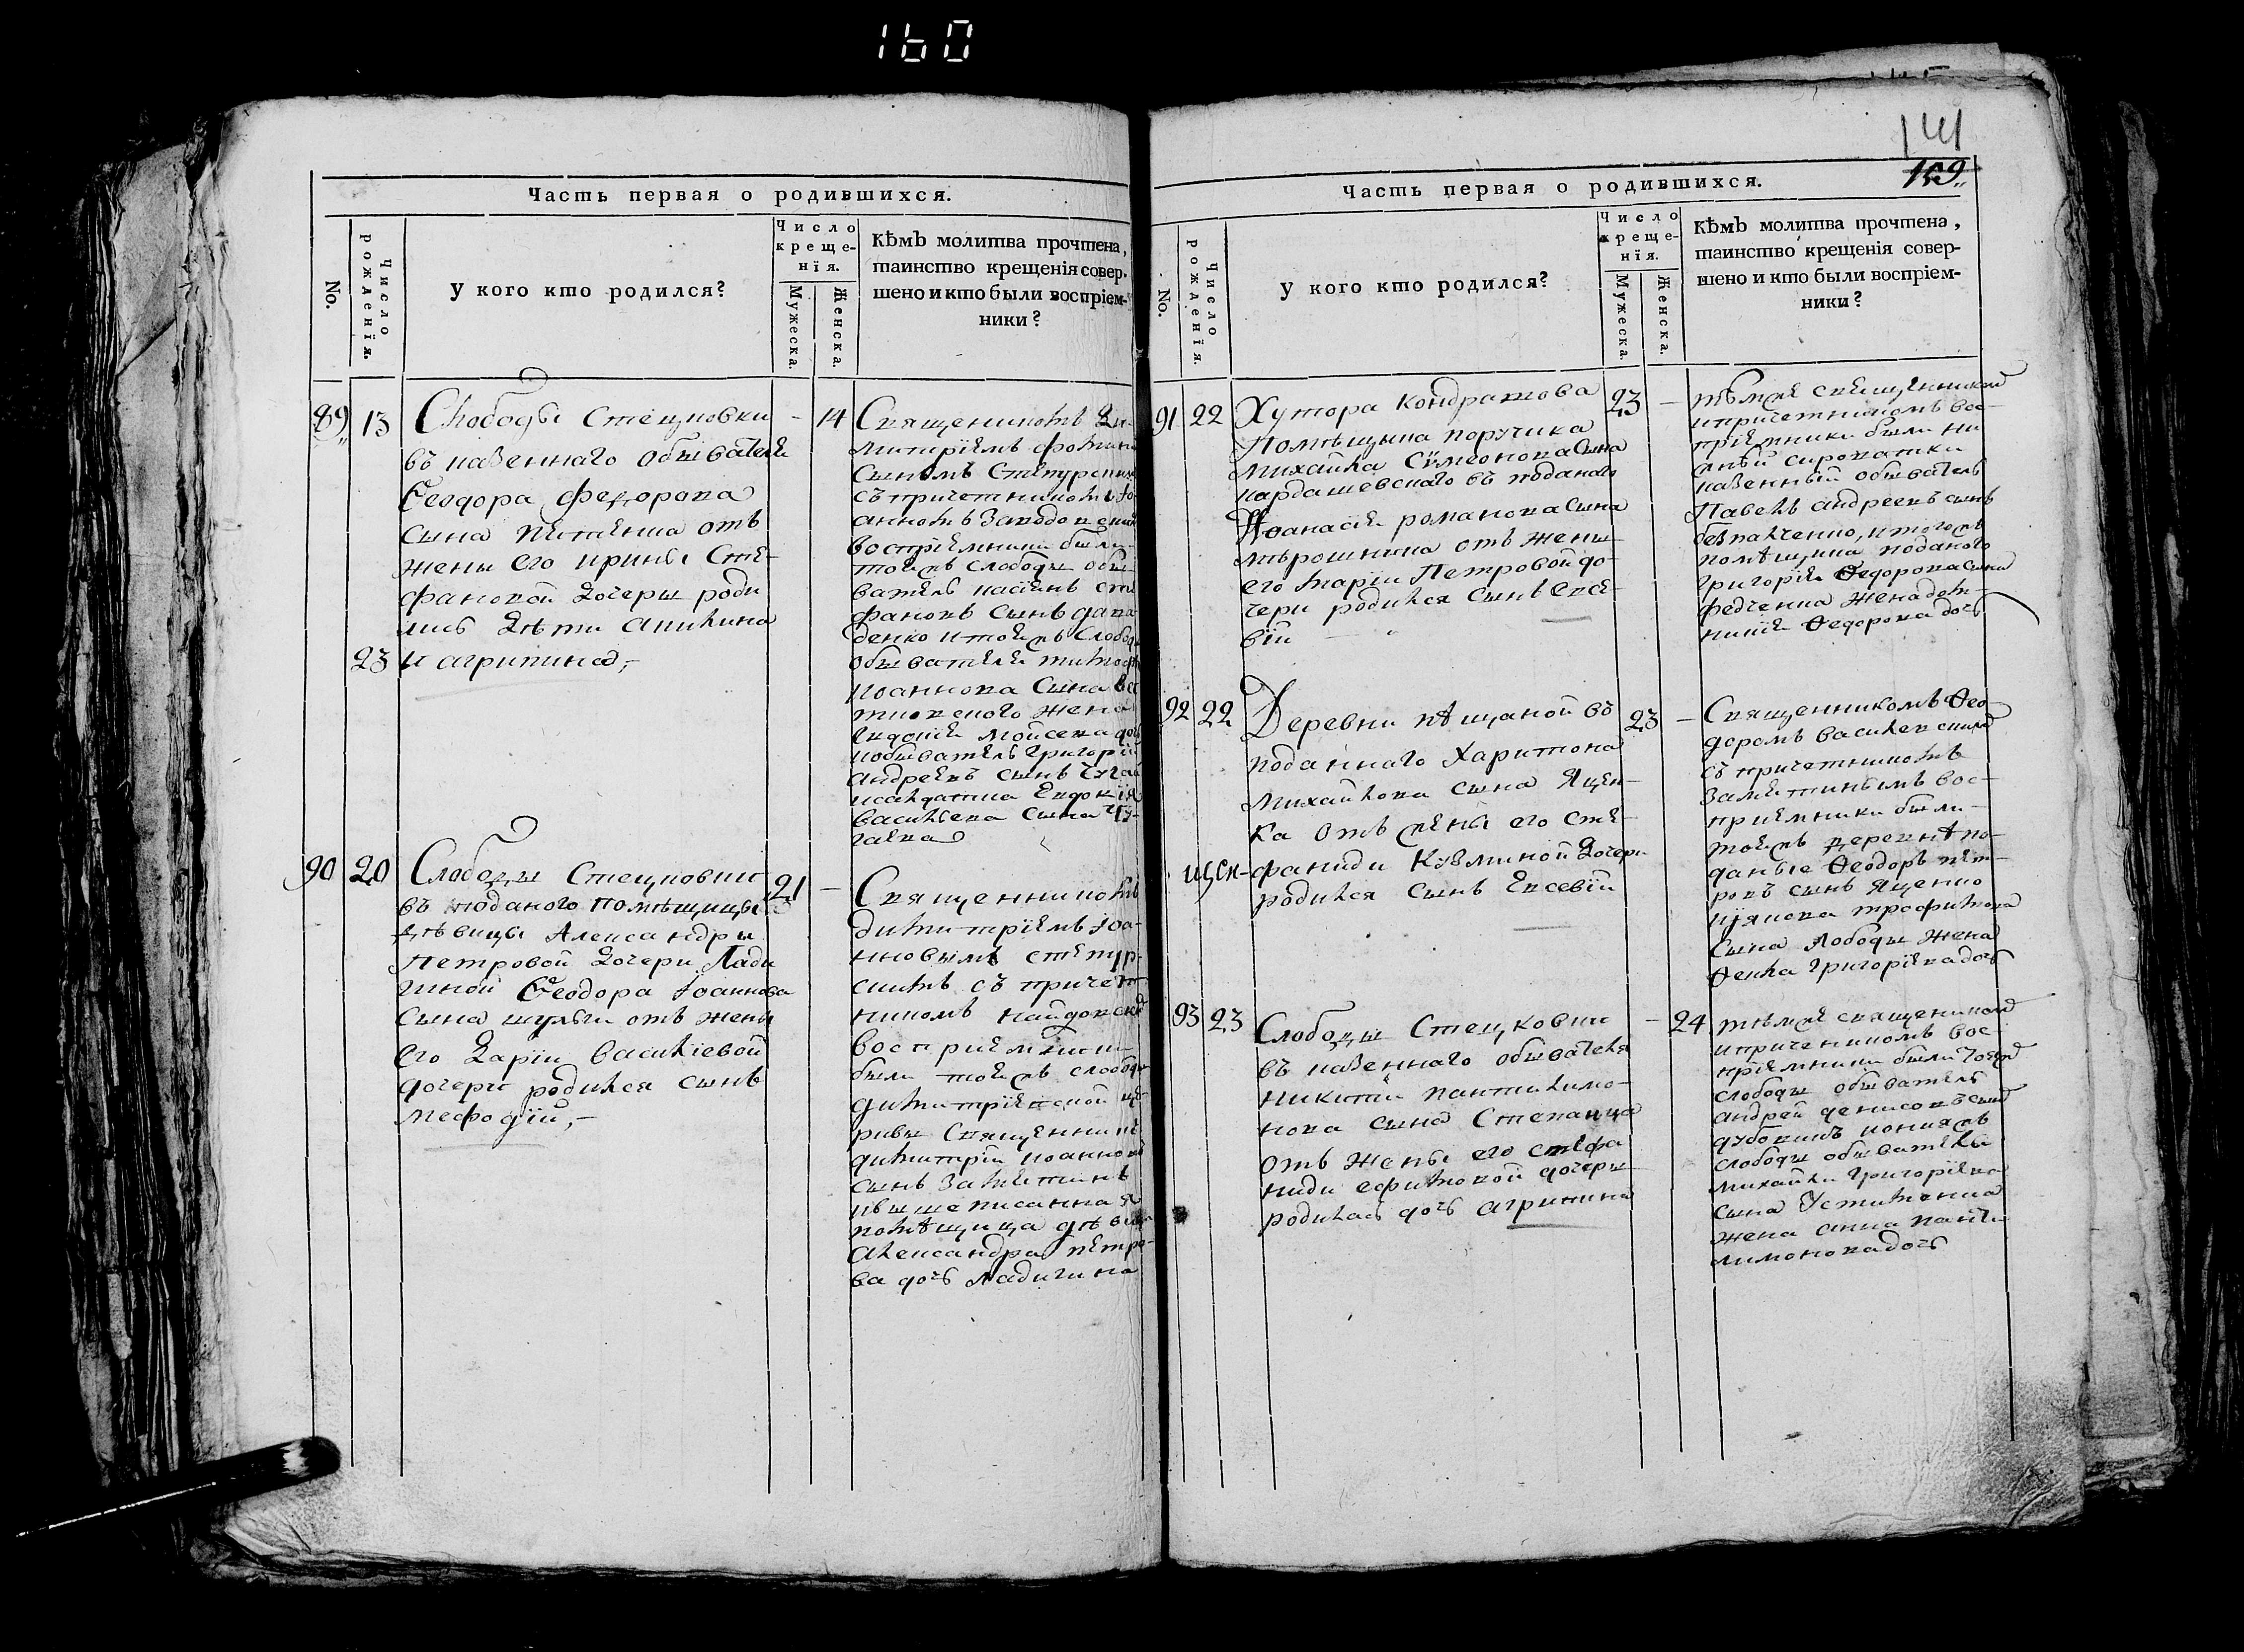 160
Часть первая о родившихся.
No.
Число рожденїя.
У кого кто родился?
Число
креще-
нїя.
Мужеска.
Женска.
Кѣмъ молитва прочтена,
таинство крещенія совер-
шено и кто были воспрієм-
ники?
89 13 Слободы Стецковки - 14
въ казеннаго обывателя
Ѳеодора федорова
сына отъ
жены его ирины Сте-
фановой дочеры роди
лись дѣти акилина
23 и агрипина,-
Священникомъ Ди-
митріемъ
сыномъ
съ причетникомъ Іо-
анномъ
воспріемники были
тоей жъ слободы обы-
ватель касіянъ сте
фановъ сынъ
денко и тоей жъ слобод
обывателя тимофея
иоаннова сына
жена
евдокія мойсеева дочь
и обыватель григорій
андреевъ сынъ
исалдатка Евдокія
василіева сына Чу-
гаева
90 20 Слободы Стецковки 21 -
въ подданого помѣщицы
дѣвицы Александры
Петровой дочери Лади
гиной Ѳеодора Іоаннова
сына шулги отъ жены
его дарїи василіевой
дочери родился сынъ
мефодїй,-
Священникомъ
димитріемъ Іоа-
нновымъ
съ причет
никомъ
воспріемники
были тоей жъ слободы
димитріевской це
рквы Священникъ
димитрій иоанновъ
сынъ
ивышеписанная
помѣщица дѣвица
Александра петро-
ва дочь ладигина
141
159
Часть первая о родившихся.
No.
Число рожденїя.
У кого кто родился?
Число
креще-
нїя.
Мужеска.
Женска.
Кѣмъ молитва прочтена,
таинство крещенія совер-
шено и кто были воспрієм-
ники?
91 22 Хутора Кондратова 23 -
Помѣщика поручика
михайла Сумеонова сына
кардашевского въ поданаго
Афанасія романова сына
мѣрошника отъ жены
его маріи Петровой до-
чери родился сынъ евсе-
вїй
тѣмже священникомъ
ипричетникомъ вос-
пріемники были ни
жнѣй сироватки
казенный обыватель
Павелъ андреевъ сынъ
итогожъ
помѣщика поданого
григорія Ѳедорова сына
федченка жена дом-
никія Ѳедорова дочь
92 22 Деревни пѣщаной въ 23 -
поданнаго Харитона
михайлова сына Яцен-
ка отъ жены его сте-
фаниди Кузминой дочери
родился сынъ Евсевїй
Священникомъ Ѳео
доромъ
съ причетникомъ
вос-
пріемники были
тоей жъ деревнѣ по-
даные Ѳеодоръ пет-
ровъ сынъ Яценко
илукяна трофимова
сына лободы жена
Ѳекла григоріева дочь
93 23 Слободы Стецковки - 24
въ казеннаго обывателя
Никити пантилимо-
нова сына Степанца
отъ жены его стефа
ниди ефимовой дочеры
родилась дочь агрипина
тѣмже священникомъ
ипричетникомъ вос
пріемники были тоежъ
слободы обыватель
андрей денисовъ сынъ
слободы обывателя
михайла григоріева
сына Устименка
жена анна панте
лимонова дочь